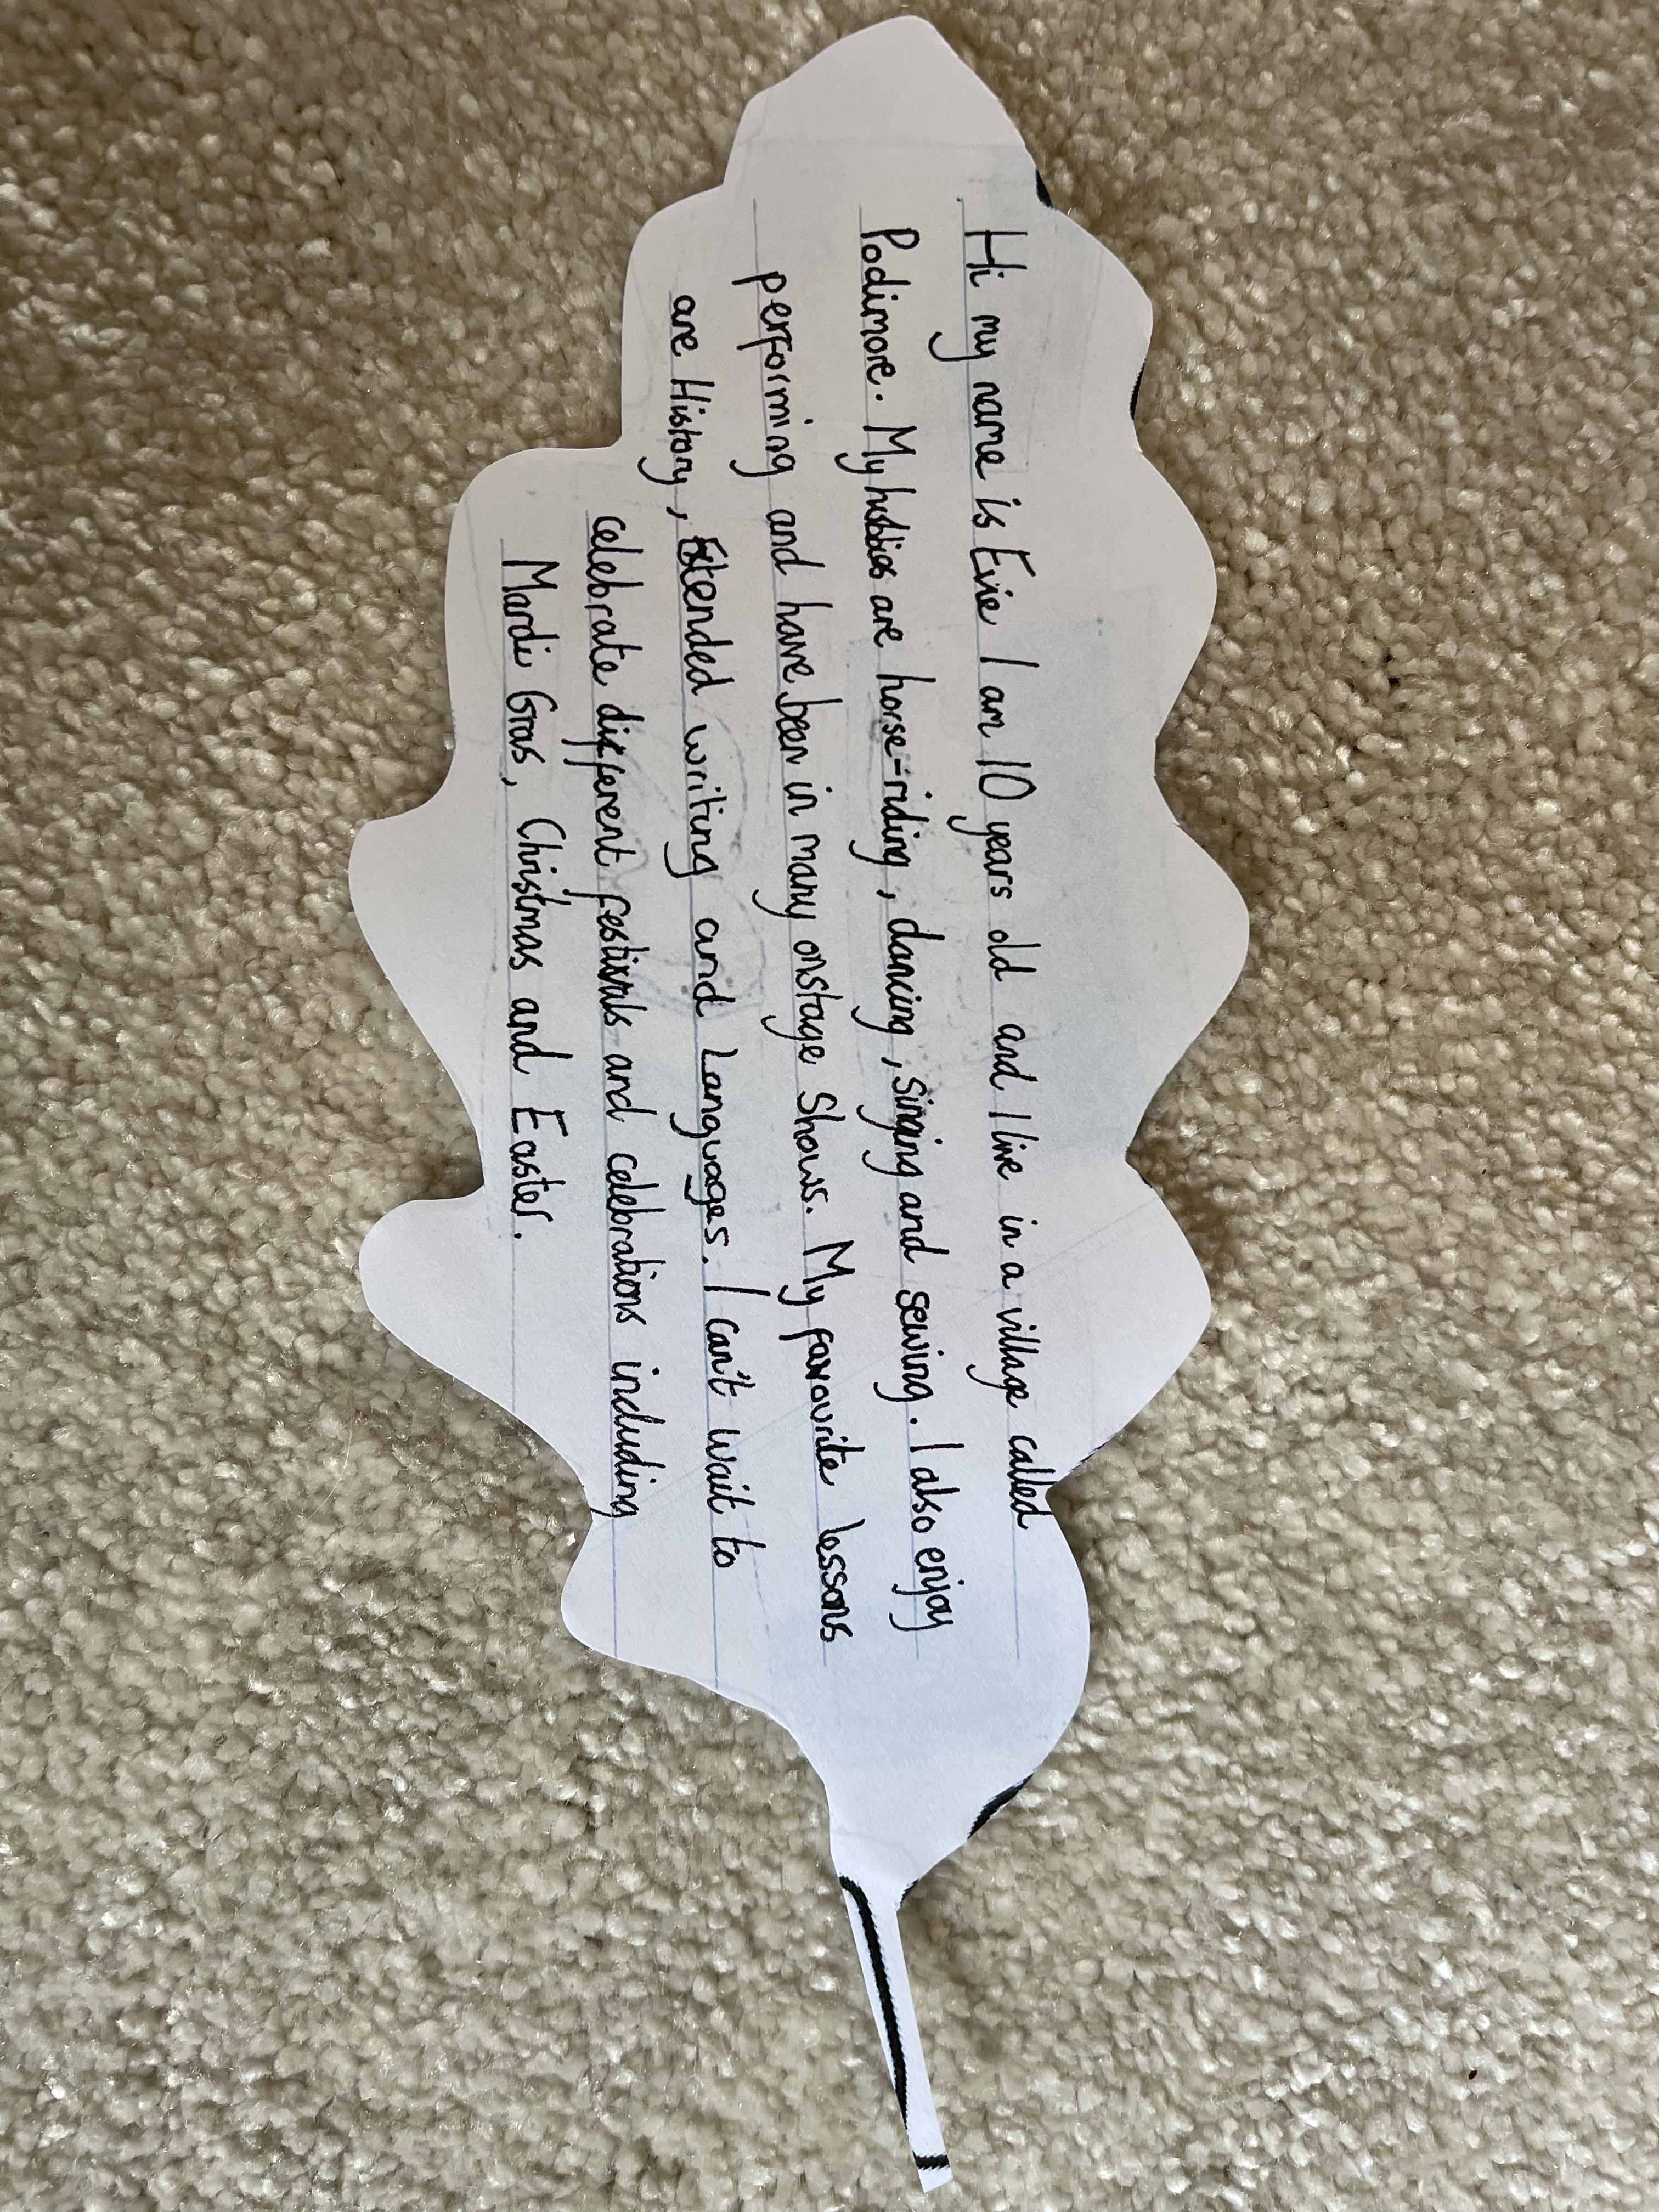 Hi my name is Evie I am 10 years old and I live in a village called
Podimore. My hobbies are horse-riding, dancing, singing and sewing. I also enjoy
performing and have been in many onstage Shows. My favourite lessons
are History, Extended writing and Languages. I can't wait to
celebrate different festivals and celebrations including
Mardi Gras, Christmas and Easter.